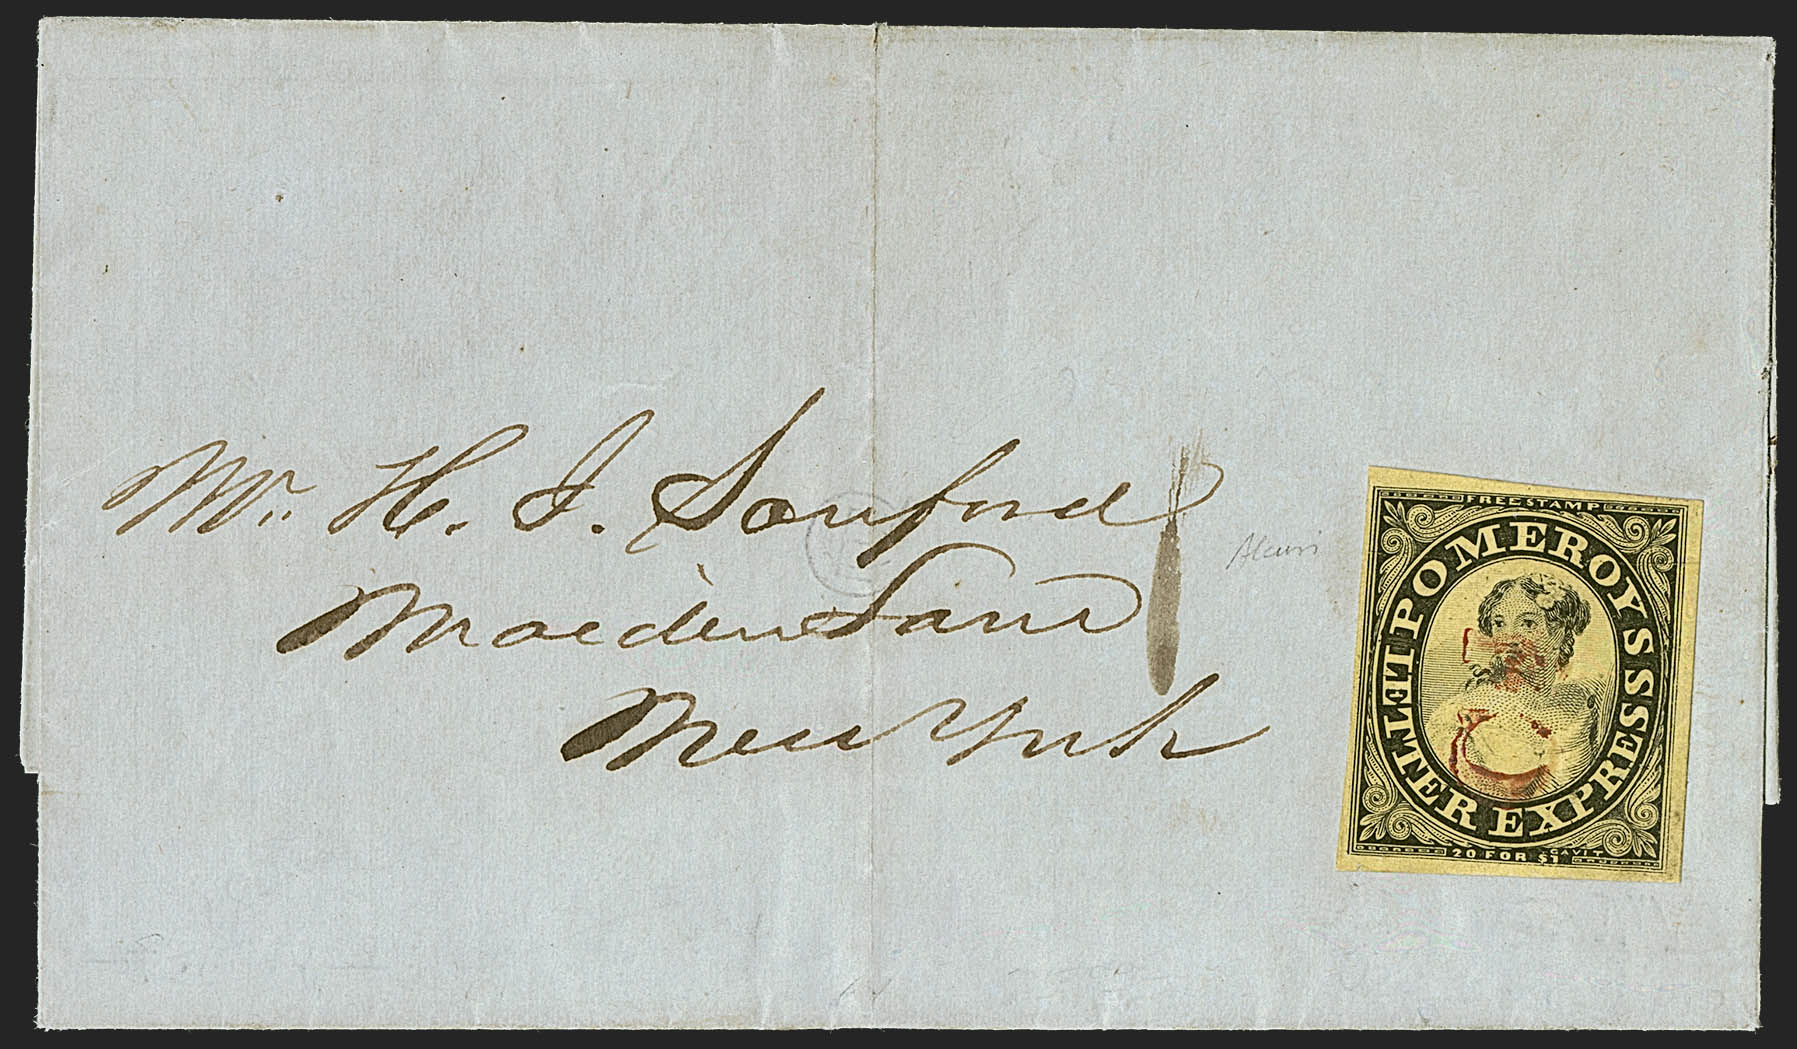 Mr. H. J. Sanford
Maiden Lane
New York
FREE STAMP
POMEROYS LETTER EXPRESS
20 FOR $1
GAVIT